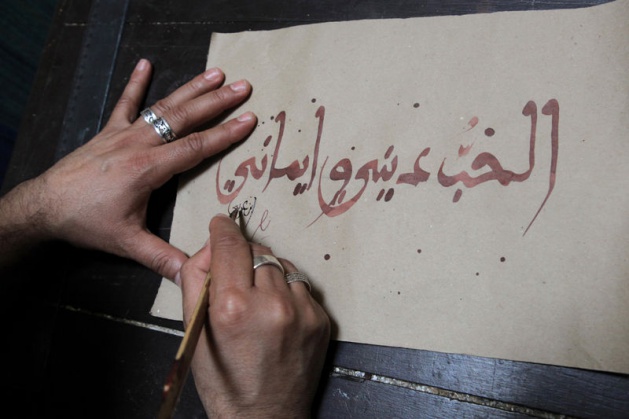 الحُبّ ديني وايماني